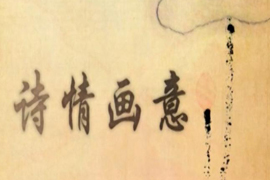 诗情画意